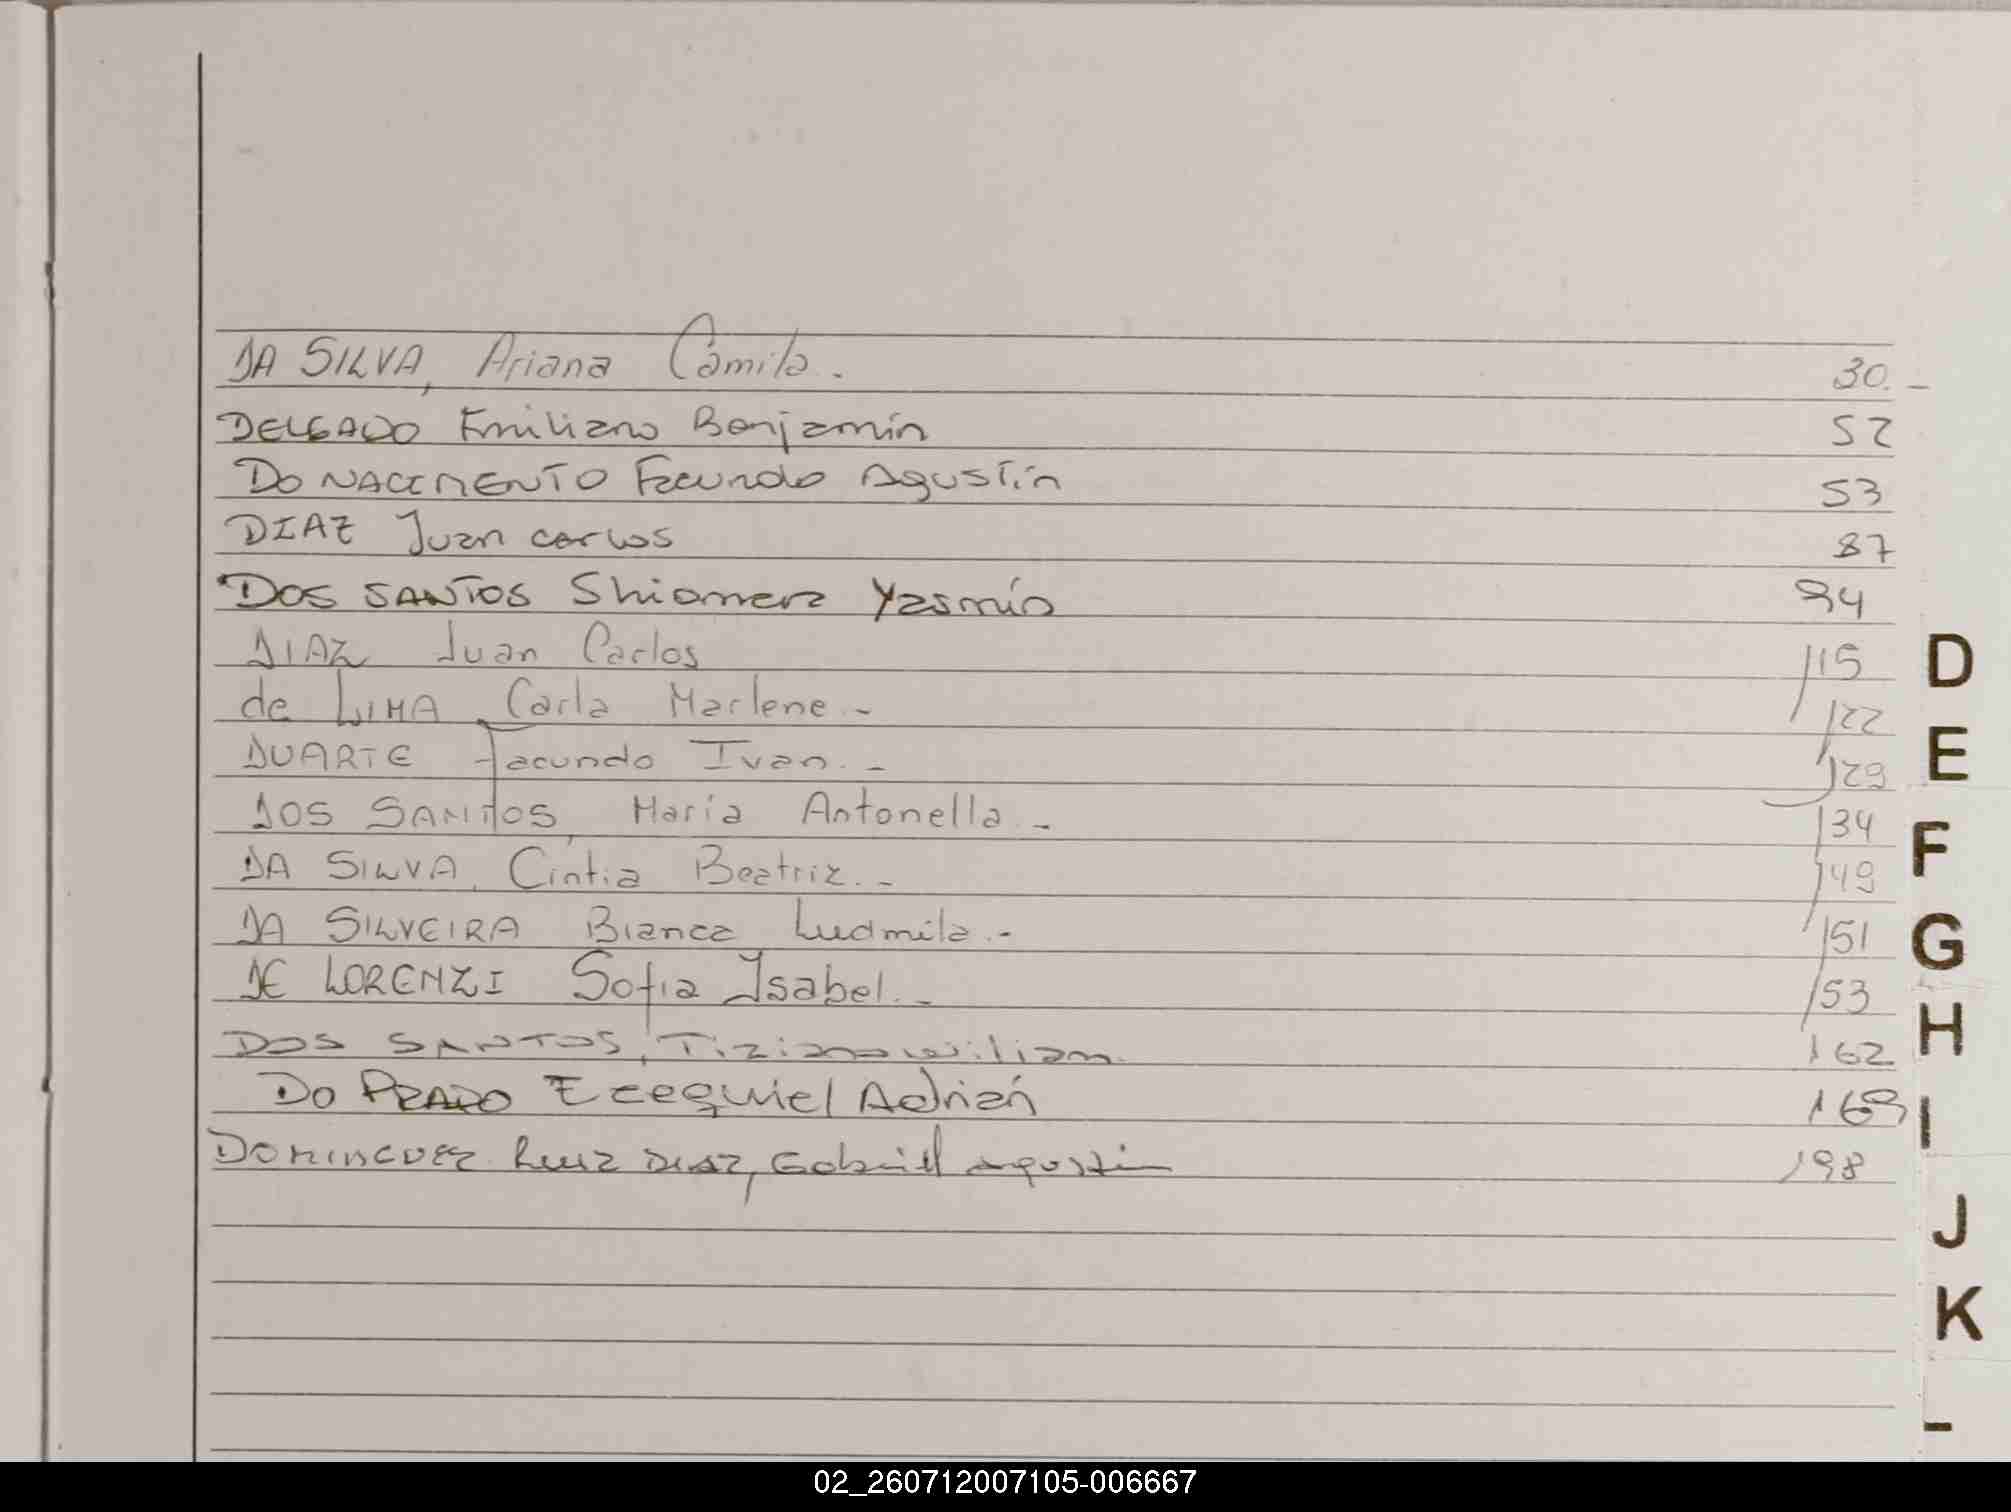 DA SILVA, Ariana Camila.	30.-
DELGADO Emiliano Benjamín	52
DO NACIMENTO Facundo Agustín	53
DIAZ Juan carlos	87
DOS SANTOS Shiomara Yasmín	94
DIAZ Juan Carlos	115
de LIMA, Carla Marlene.-	122
DUARTE Facundo Ivan.-	129
DOS SANTOS, María Antonella.-	134
DA SILVA, Cintia Beatriz.-	149
DA SILVEIRA Bianca Ludmila.-	151
DE LORENZI Sofia Isabel.-	153
DOS SANTOS, Tiziano wiliam.	162
DO PRADO Ezequiel Adrián	169
DOMINGUEZ Ruiz DIAZ, Gabriel agustin	198
D
E
F
G
H
I
J
K
02_260712007105-006667